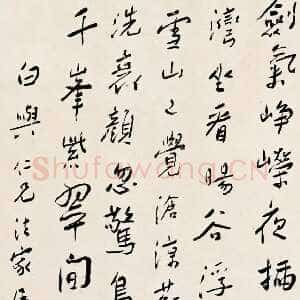 劍氣崢嶸夜插
灣坐看暘谷浮
雪山已覺滄涼蘇
洗衰顏忽驚鳥
千峯紫翠間
白與仁兄法家
Shufawang.CN